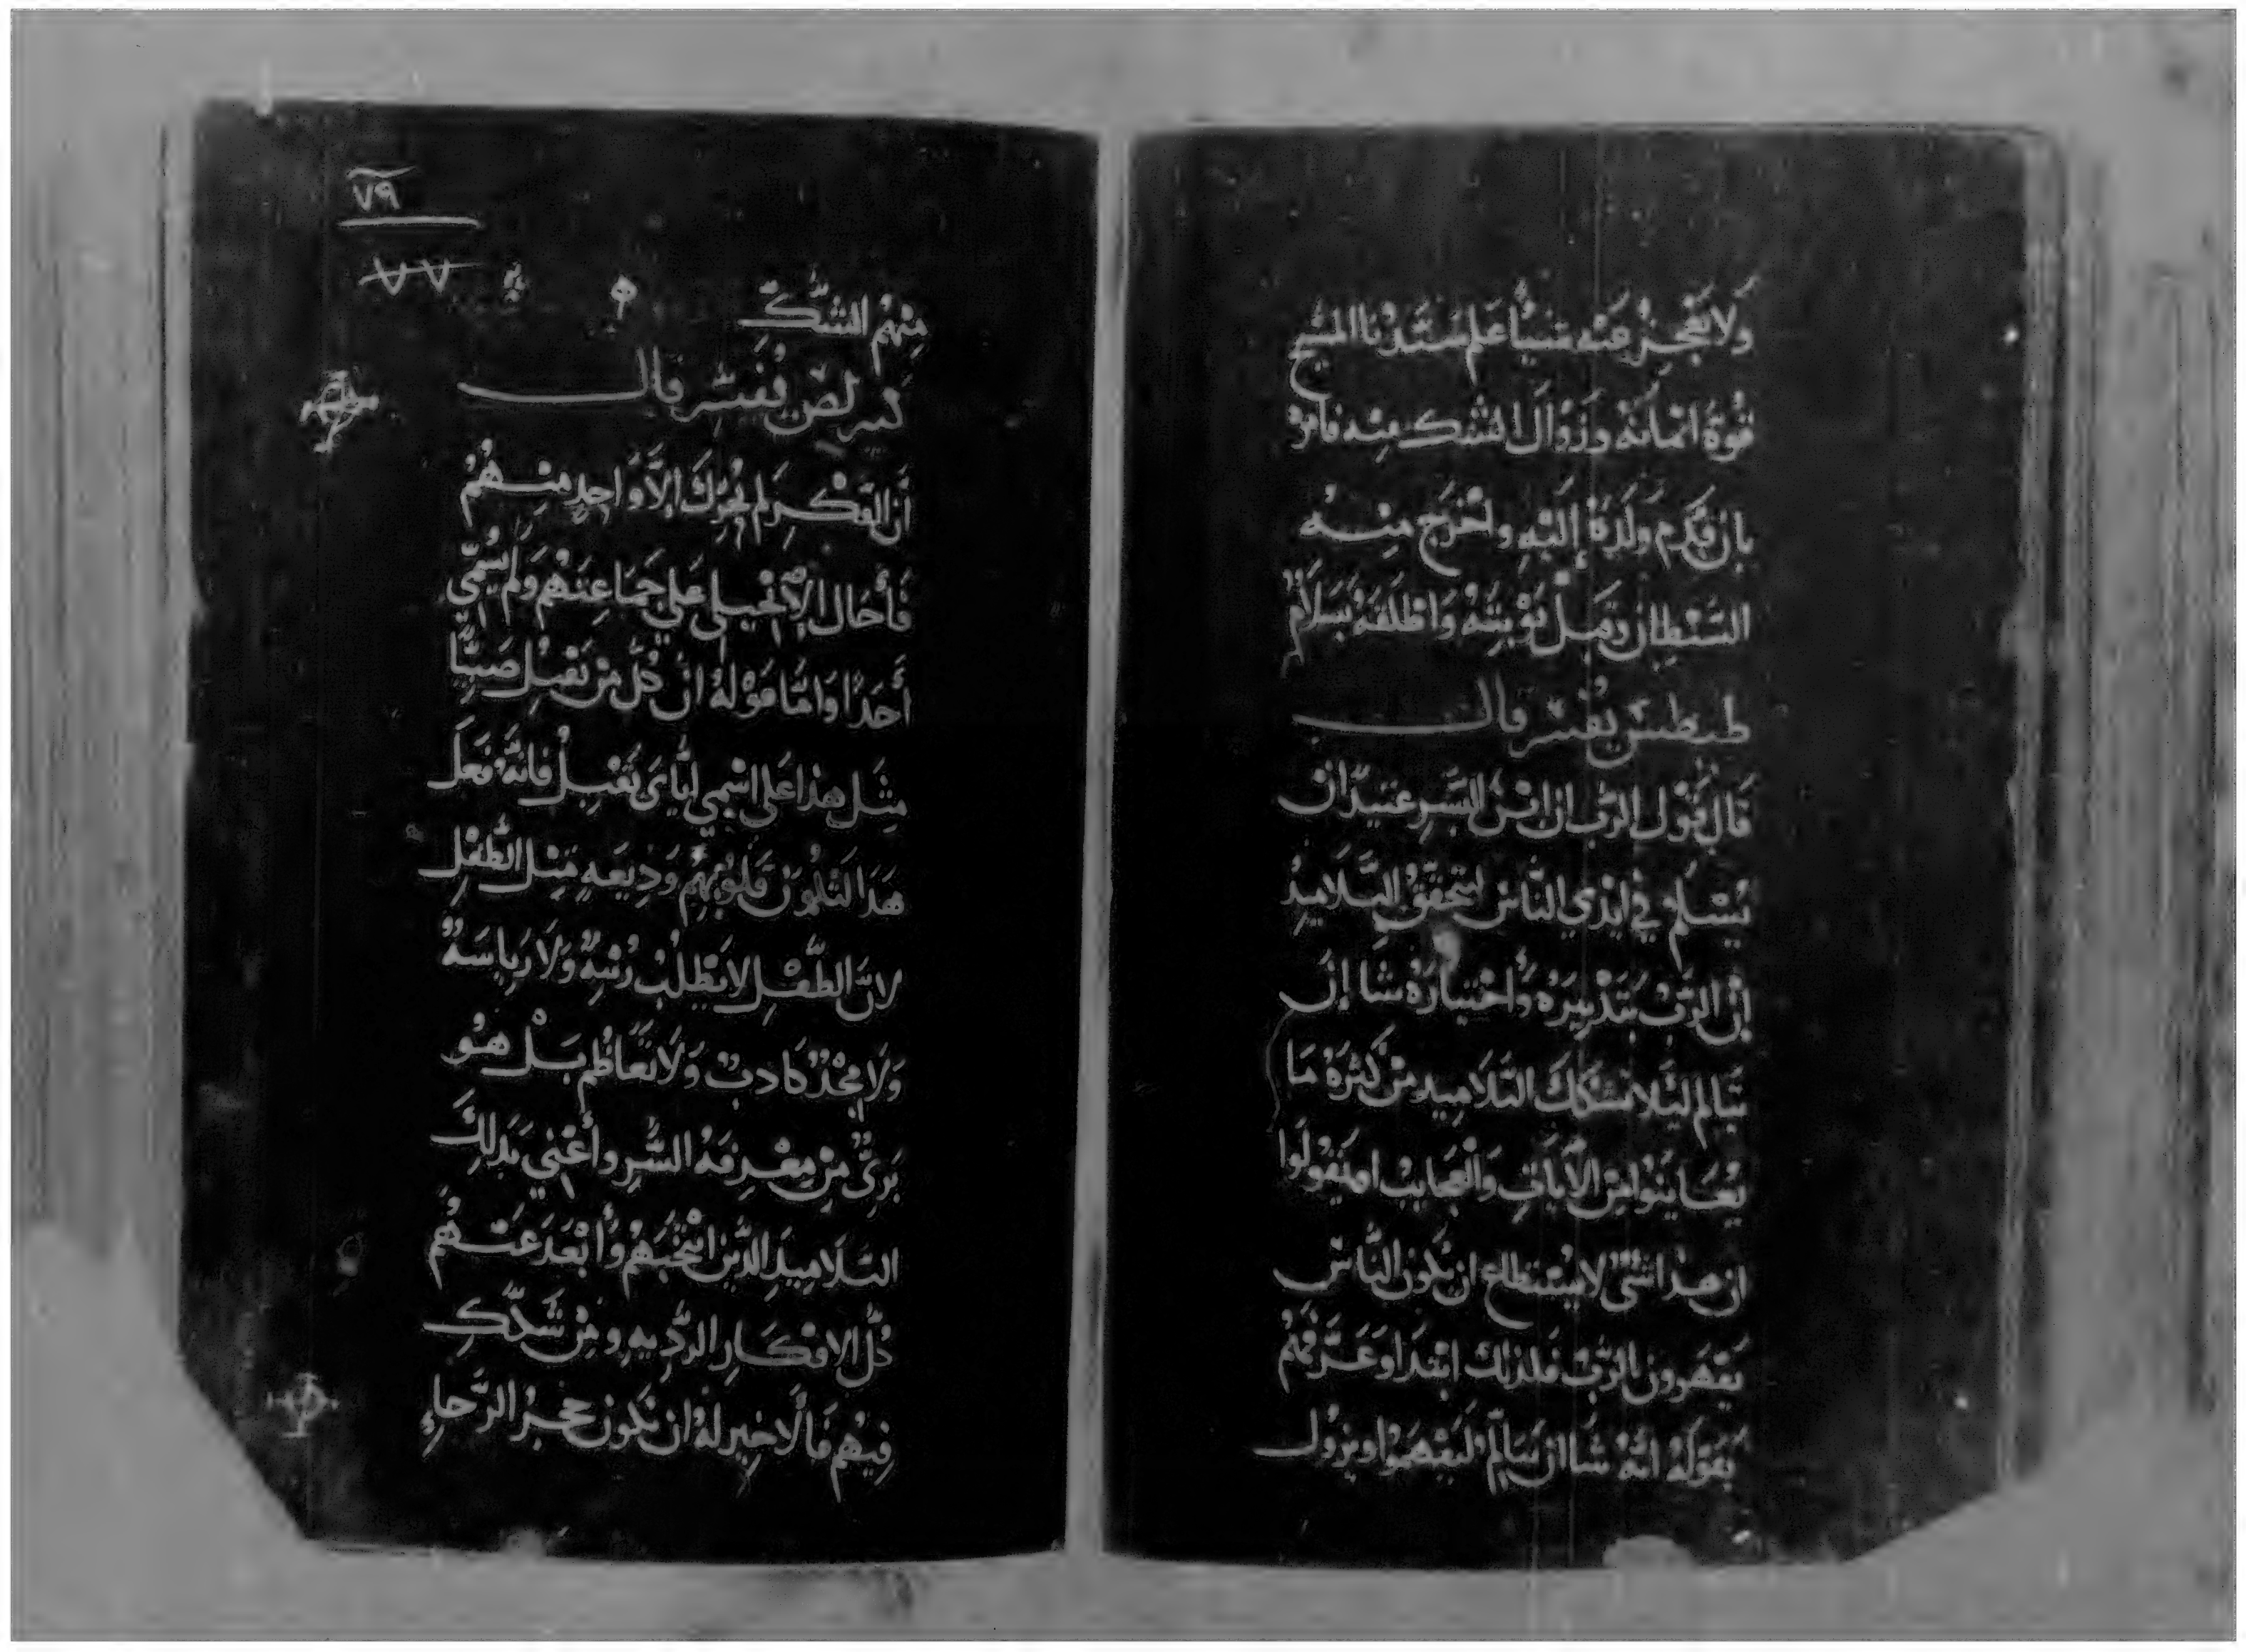 وَلَا يَعْجِزْ عَنْهُ شَيْئًا عَلِمَ سَيّدْنَا المَسيح
قُوةَ امَانَتهُ وَزَوَالَ الشَك مِنه فامرَ
بان قَدِم وَلَدَهُ إِلَيْهِ واخرَج مِنــه
الشَيْطان وَقَبِل تَوْبَتَهُ وَاطلَقَهُ بِسَلَام
طيطس يُفسر قالــــ
قَالَ يَقول الرَب ان ابْن البَشَر عَتيدٌ ان
يُسَلّم في ايْدي النَّاس لتحَقق التَلاميذ
إِنَّ الرَب بتَدْبِيرهُ وَأخْتيَارهُ شَا إِن
يَتَالم ليَلا تَشَكك التَلَاميد من كثرَة مَا
يُعَاينوا مِن الآيَاتِ وَالعَجايب اويَقولوا
ان هدا شَىٌ لا يستطاع ان يكون النَّاس
يَقْهَرون الرَبّ فلدلك ابتدَا وَعَرَّفهُم
بقَوْلهُ انهُ شَا ان يَتَالّم ليَفهَموا ويزول
٧٩
٧٧
مِنْهُم الشَّكّ
كيرلص يُفسر قالــــ
أن الفكْر لَم يُحَرِّكَ إِلَّا وَاحِدٍ مِنــهُمْ
فَأَحَال الإِنْجيلي عَلي جَمَاعِتهُم وَلَم يُسَمّي
أَحَدًا وَامَّا قَوْلهُ ان كُلّ مَن يَقبل صَبيًّا
مِثل هذا عَلى اسْمي ايَّاىَ يَقبِل فانهُ جَعَل
هَدَا لتَكُون قلوبُهم وَديعَه مثل الطِفْل
لانَ الطفْل لا يَطلب رُتبهٌ وَلَا رياسَهٌ
وَلَا مَجْدٌ كادبٌ وَلَا تَعَاظم بَـلْ هـو
بَرِىٌ مِن مِعْرفَهُ الشَّر وأعْني بدَلِكَ
التَلَاميدِ الدِين انتخَبَهُم وَأبْعَدَ عَنــهُم
كُلّ الافكَار الرَّدِيهِ ومِن شَكّكِ
فِيهِم فَالاخير لهُ ان تكون حجرُ الرَّحاءِ